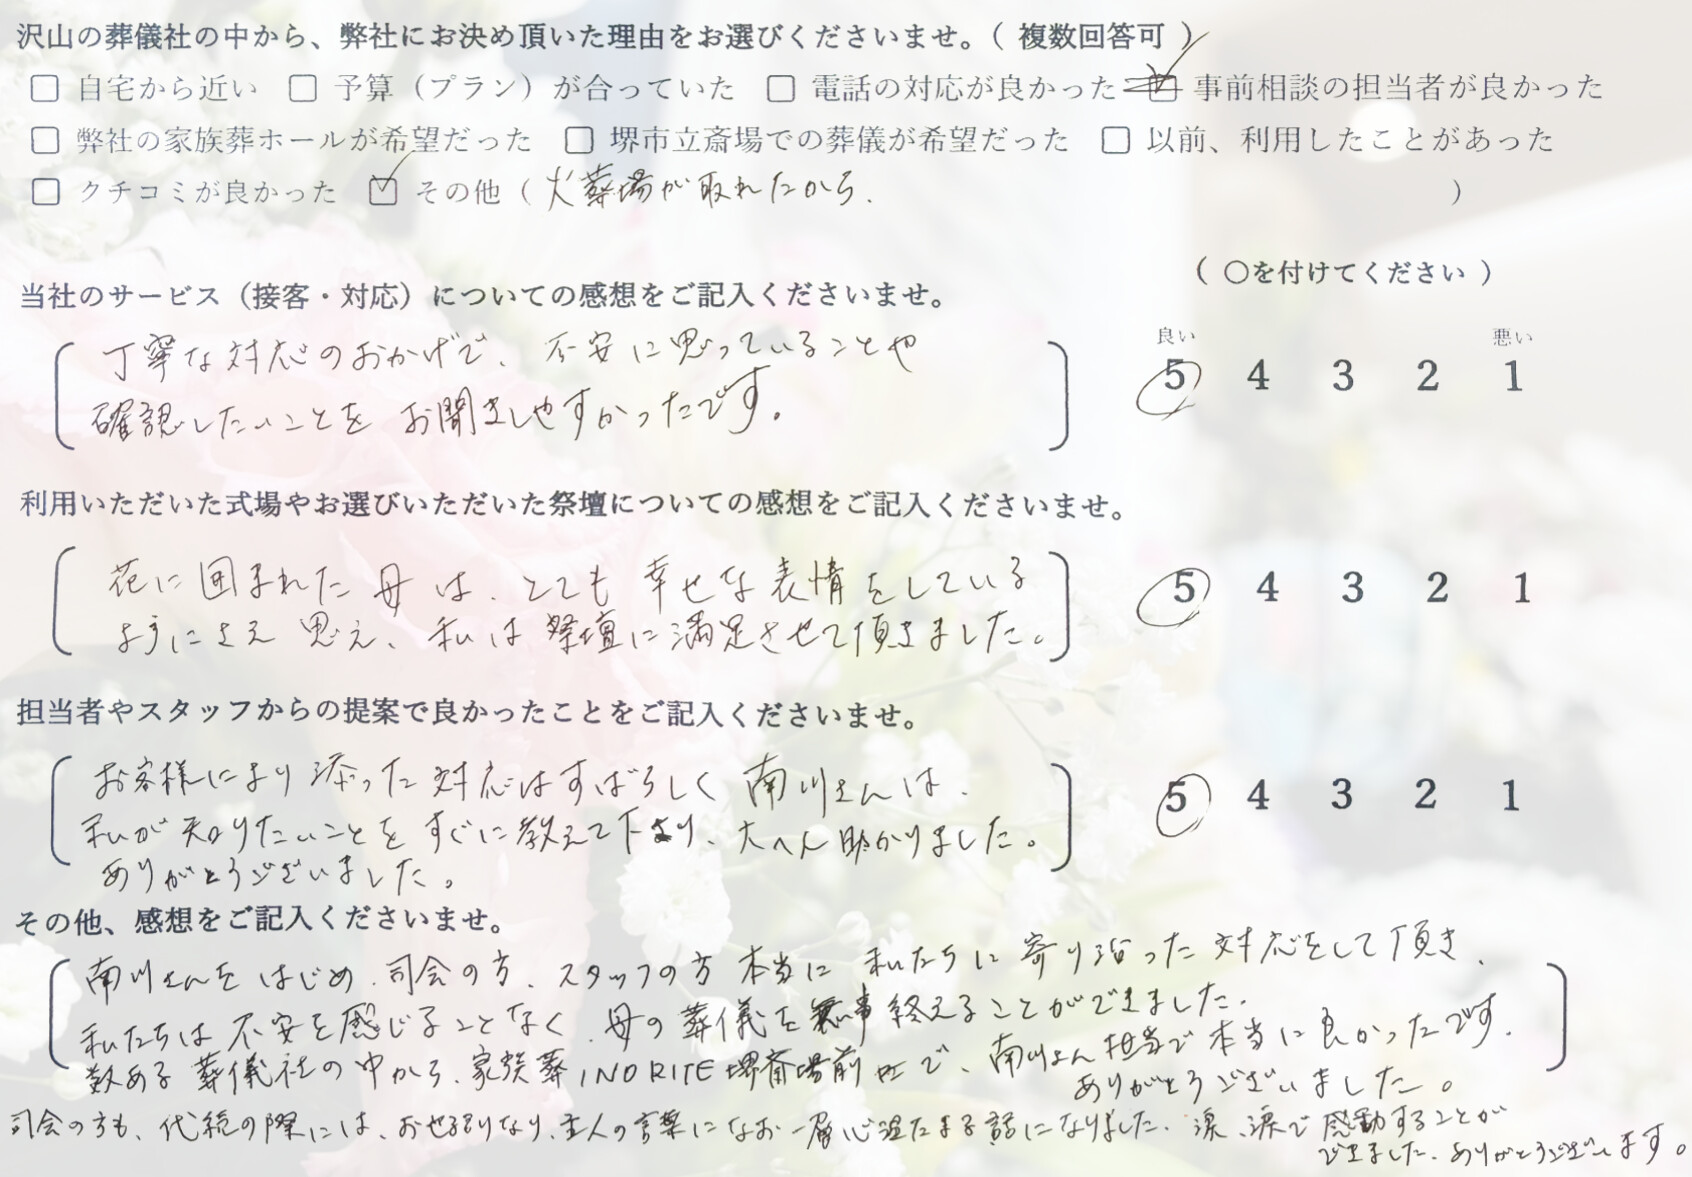 沢山の葬儀社の中から、弊社にお決め頂いた理由をお選びくださいませ。（ 複数回答可 ）
□ 自宅から近い □ 予算（プラン）が合っていた □ 電話の対応が良かった ☑ 事前相談の担当者が良かった
□ 弊社の家族葬ホールが希望だった □ 堺市立斎場での葬儀が希望だった □ 以前、利用したことがあった
□ クチコミが良かった ☑ その他（ 火葬場が取れたから. ）
（ ○を付けてください ）
当社のサービス（接客・対応）についての感想をご記入くださいませ。
良い 悪い
5 4 3 2 1
丁寧な対応のおかげで、不安に思っていることや
確認したいことを お聞きしやすかったです。
利用いただいた式場やお選びいただいた祭壇についての感想をご記入くださいませ。
花に囲まれた母は、とても幸せな表情をしている
5 4 3 2 1
ようにさえ思え、私は祭壇に満足させて頂きました。
担当者やスタッフからの提案で良かったことをご記入くださいませ。
お客様により添った対応はすばらしく南川さんは、
5 4 3 2 1
私が知りたいことをすぐに教えて下さり、大へん助かりました。
ありがとうございました。
その他、感想をご記入くださいませ。
南川さんをはじめ、司会の方、スタッフの方 本当に 私たちに寄り沿った対応をして頂き、
私たちは不安を感じることなく、母の葬儀を無事終えることができました.
数ある葬儀社の中から、家族葬INORITE堺斎場前店で、南川さん担当で本当に良かったです.
ありがとうございました。
司会の方も、代読の際には、お世話になり、主人の言葉になお一層心温たまる話になりました. 涙、涙で感動することが
できました. ありがとうございます。